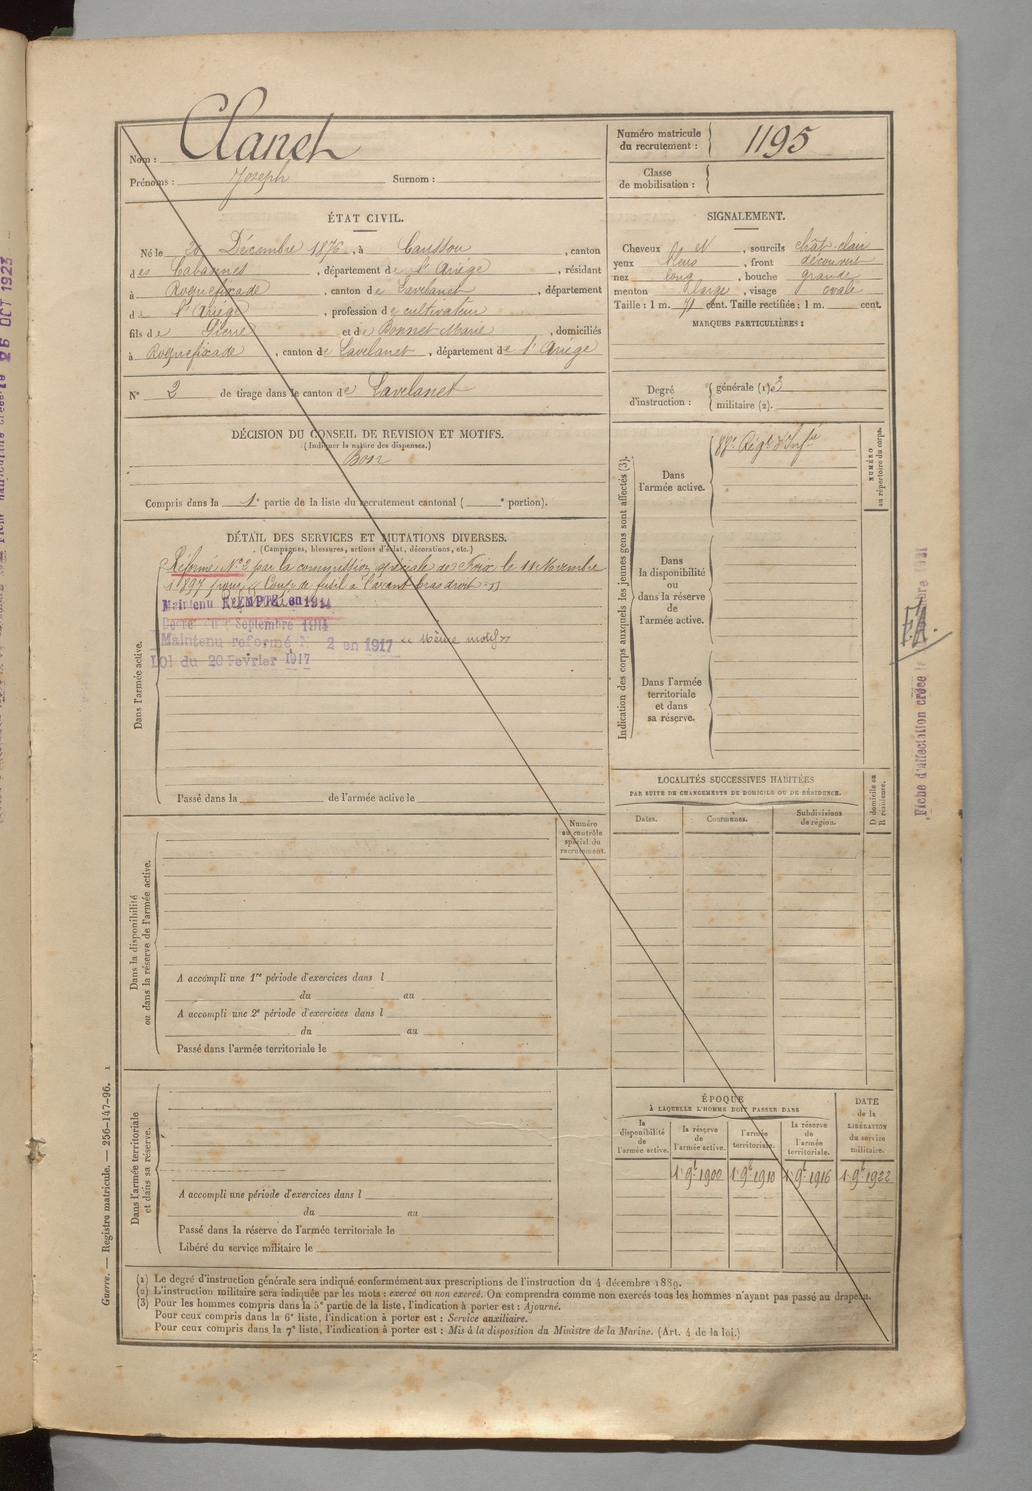 Nom : Clanet
Prénoms : Joseph Surnom :
Numéro matricule du recrutement : 1195
Classe de mobilisation :
ÉTAT CIVIL.
Né le 20 Décembre 1876, à Caussou, canton
des Cabannes, département de l'Ariège, résidant
à Roquefixade, canton de Lavelanet, département
de l'Ariège, profession de cultivateur
fils de Pierre et de Bonnet Marie, domiciliés
à Roquefixade, canton de Lavelanet, département de l'Ariège
N° 2 de tirage dans le canton de Lavelanet
SIGNALEMENT.
Cheveux et N, sourcils chât-clair
yeux bleus, front découvert
nez long, bouche grande
menton large, visage ovale
Taille : 1 m. 71 cent. Taille rectifiée : 1 m. cent.
MARQUES PARTICULIÈRES :
Degré d'instruction : générale (1) 3
militaire (2).
DÉCISION DU CONSEIL DE REVISION ET MOTIFS.
(Indiquer la nature des dispenses.)
Bon
Compris dans la 1e partie de la liste du recrutement cantonal ( e portion).
DÉTAIL DES SERVICES ET MUTATIONS DIVERSES.
(Campagnes, blessures, actions d'éclat, décorations, etc.)
Réformé N° 2 par la commission spéciale de Foix le 11 Novembre
1897 pour « Coup de fusil à l'avant bras droit »
Maintenu EXEMPTÉ en 1914
Décret du 9 Septembre 1914
Maintenu réformé N° 2 en 1917 « Même motif »
Loi du 20 Février 1917
Dans l'armée active.
Passé dans la de l'armée active le
Indication des corps auxquels les jeunes gens sont affectés (3).
Dans l'armée active.
88e Régt d'Infie
NUMÉRO au répertoire du corps.
Dans la disponibilité ou dans la réserve de l'armée active.
Dans l'armée territoriale et dans sa réserve.
LOCALITÉS SUCCESSIVES HABITÉES
PAR SUITE DE CHANGEMENTS DE DOMICILE OU DE RÉSIDENCE.
Dates. Communes. Subdivisions de région. D domicile ou R résidence.
Numéro au contrôle spécial du recrutement.
Dans la disponibilité ou dans la réserve de l'armée active.
A accompli une 1re période d'exercices dans l
du au
A accompli une 2e période d'exercices dans l
du au
Passé dans l'armée territoriale le
Dans l'armée territoriale et dans sa réserve.
A accompli une période d'exercices dans l
du au
Passé dans la réserve de l'armée territoriale le
Libéré du service militaire le
ÉPOQUE
À LAQUELLE L'HOMME DOIT PASSER DANS
la disponibilité de l'armée active.
la réserve de l'armée active.
l'armée territoriale.
la réserve de l'armée territoriale.
DATE de la LIBÉRATION du service militaire.
1 9bre 1900 1 9bre 1910 1 9bre 1916 1 9bre 1922
(1) Le degré d'instruction générale sera indiqué conformément aux prescriptions de l'instruction du 4 décembre 1889.
(2) L'instruction militaire sera indiquée par les mots : exercé ou non exercé. On comprendra comme non exercés tous les hommes n'ayant pas passé au drapeau.
(3) Pour les hommes compris dans la 5e partie de la liste, l'indication à porter est : Ajourné.
Pour ceux compris dans la 6e liste, l'indication à porter est : Service auxiliaire.
Pour ceux compris dans la 7e liste, l'indication à porter est : Mis à la disposition du Ministre de la Marine. (Art. 4 de la loi.)
Guerre. — Registre matricule. — 256-147-96. 1
Fiche d'affectation créée le
26 OCT 1923